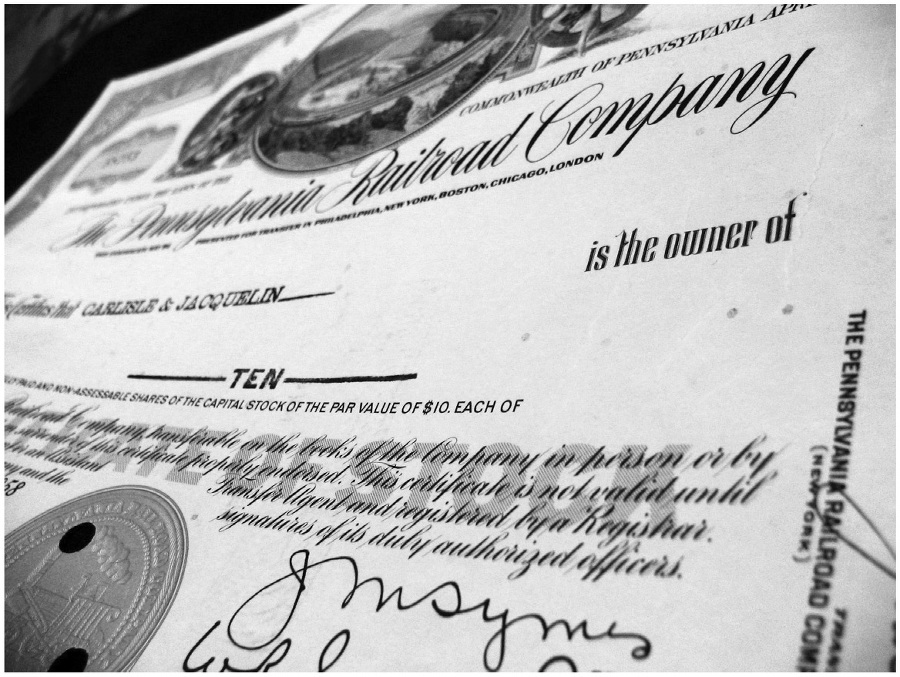 COMMONWEALTH OF PENNSYLVANIA
The Pennsylvania Railroad Company
PRESENTED FOR TRANSFER IN PHILADELPHIA, NEW YORK, BOSTON, CHICAGO, LONDON
is the owner of
Certifies that CARLISLE & JACQUELIN
TEN
PAID AND NON-ASSESSABLE SHARES OF THE CAPITAL STOCK OF THE PAR VALUE OF $10. EACH OF
Railroad Company, transferable on the books of the Company in person or by
of this certificate properly endorsed. This certificate is not valid until
Transfer Agent and registered by a Registrar.
and the
signatures of its duly authorized officers.
58
STOCK
J M Symes
THE PENNSYLVANIA RAILROAD COM
(NEW YORK)
TRAN